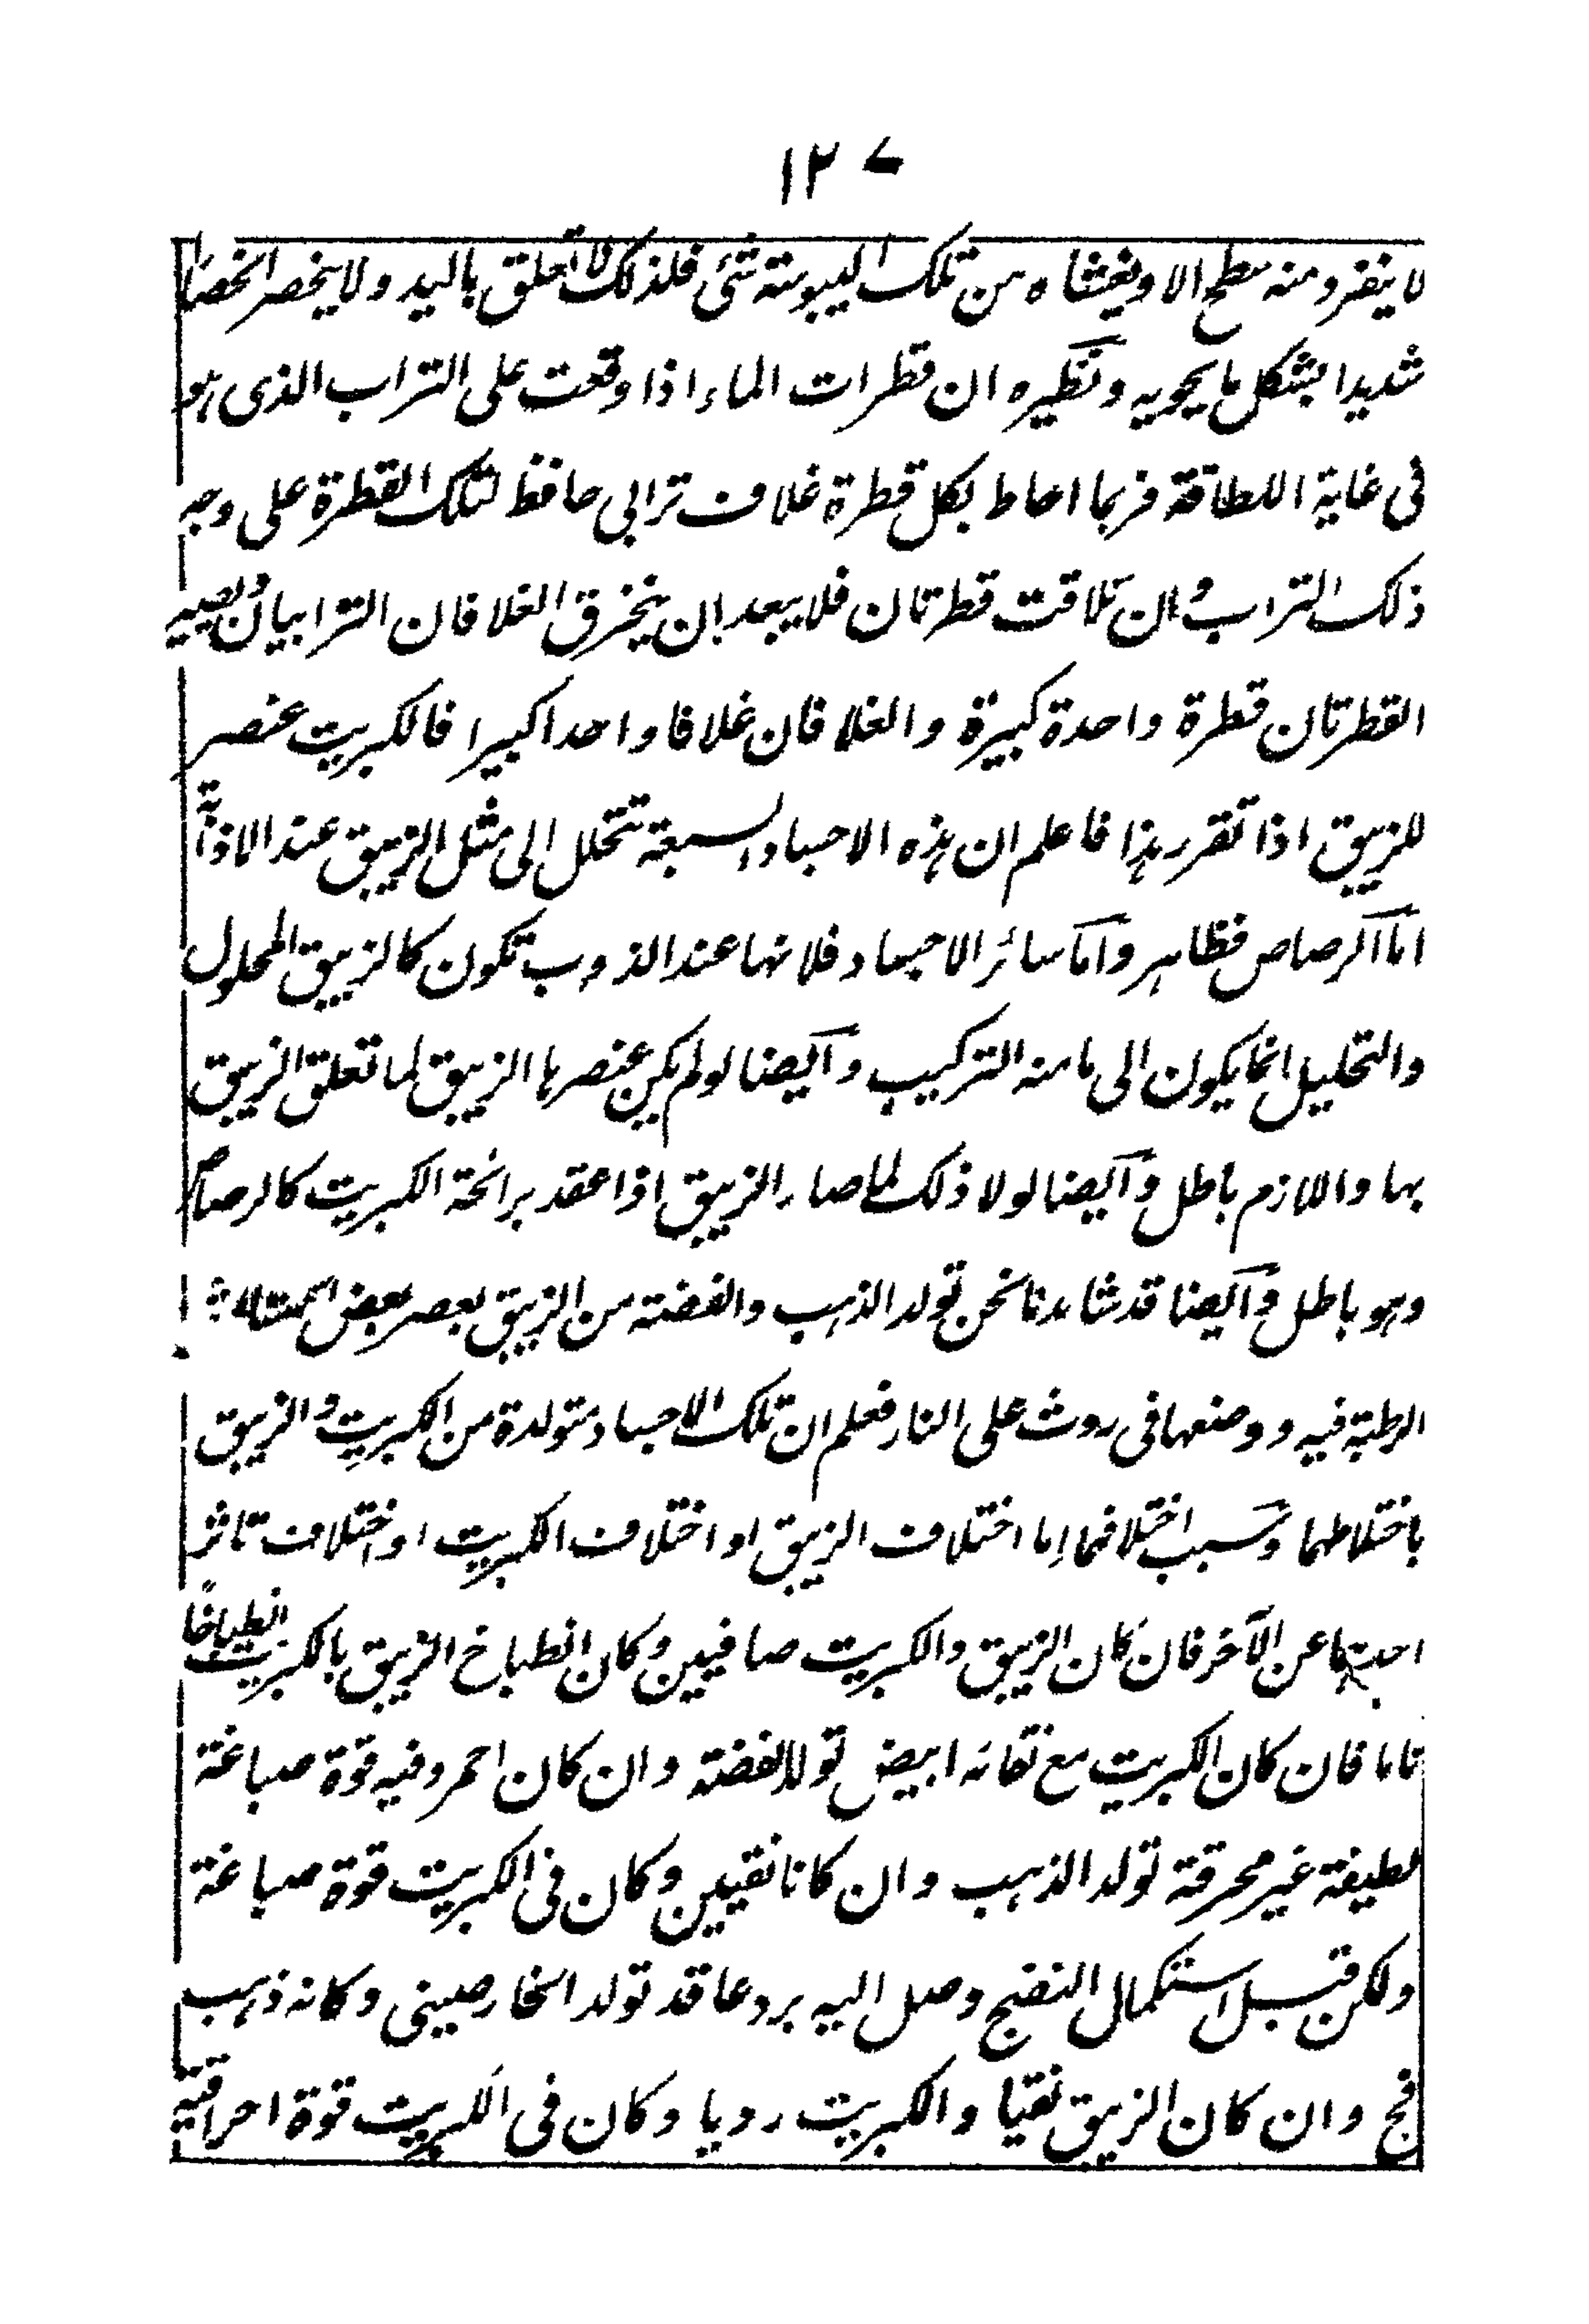 ١٢٧
لا ينفرد منه سطح الا ويغشاه من تلك اليبوسة شئ فلذلك لا تعلق باليد ولا ينحصر انحصارا
شديدا بشكل ما يحويه ونظيره ان قطرات الماء اذا وقعت على التراب الذى هو
فى غاية اللطافة فربما احاط بكل قطرة غلاف ترابى حافظ لتلك القطرة على وجه
ذلك التراب وان تلاقت قطرتان فلا يبعد ان ينخرق الغلافان الترابيان ويصير
القطرتان قطرة واحدة كبيرة والغلافان غلافا واحدا كبيرا فالكبريت عنصر
للزيبق اذا تقرر هذا فاعلم ان هذه الاجساد السبعة تتحلل الى مثل الزيبق عند الاذابة
اما الرصاص فظاهر واما سائر الاجساد فلانها عند الذوب تكون كالزيبق المحلول
والتحليل انما يكون الى ما منه التركيب وايضا لو لم يكن عنصرها الزيبق لما تعلق الزيبق
بها واللازم باطل وايضا لولا ذلك لما صار الزيبق اذا عقد برائحة الكبريت كالرصاص
وهو باطل وايضا قد شاهدنا نحن تولد الذهب والفضة من الزيبق بعصر بعض
الرطبة فيه ووضعها فى روث على النار فعلم ان تلك الاجساد متولدة من الكبريت والزيبق
باختلاطهما وسبب اختلافها اما اختلاف الزيبق او اختلاف الكبريت او اختلاف تاثر
احدهما عن الآخر فان كان الزيبق والكبريت صافيين وكان انطباخ الزيبق بالكبريت انطباخا
تاما فان كان الكبريت مع نقائه ابيض تولد الفضة وان كان احمر وفيه قوة صباغة
لطيفة غير محرقة تولد الذهب وان كانا نقيين وكان فى الكبريت قوة صباغة
ولكن قبل استكمال النضج وصل اليه برد عاقد تولد الخارصينى وكانه ذهب
فج وان كان الزيبق نقيا والكبريت رديا وكان فى الكبريت قوة احراقية